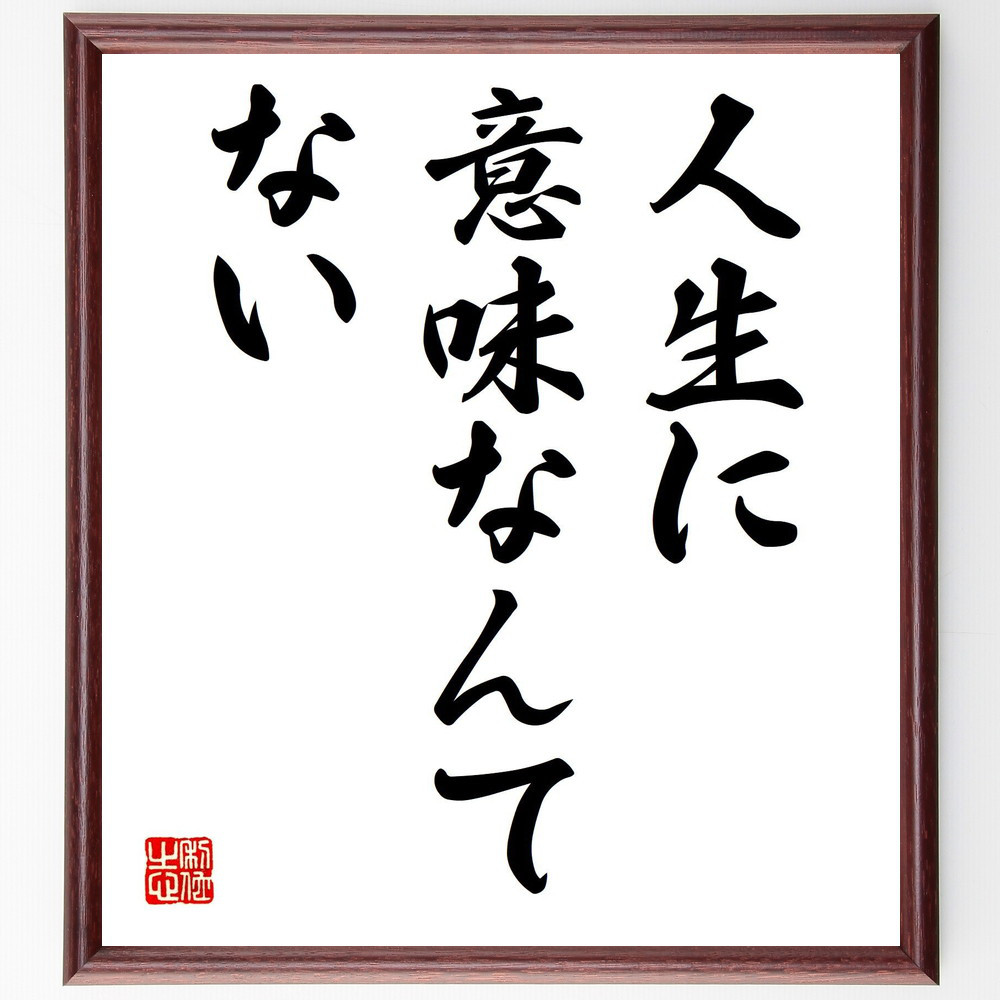 人生に
意味なんて
ない